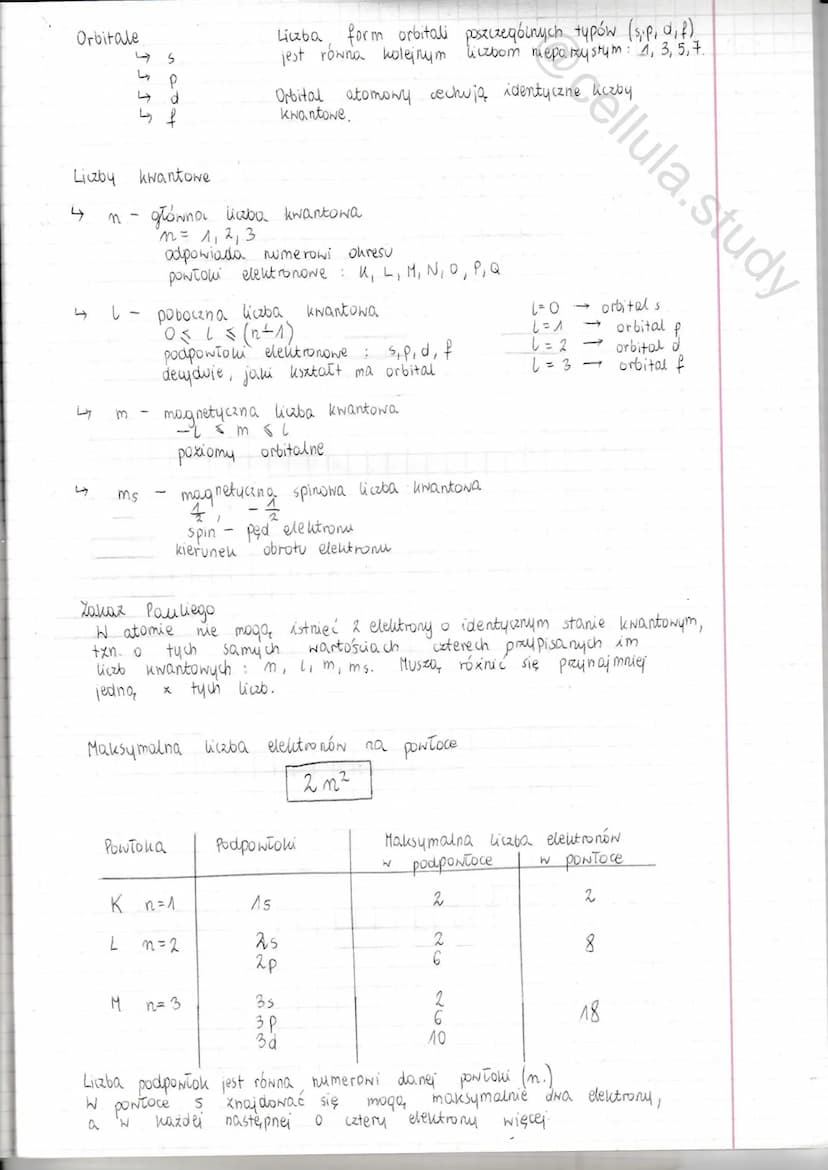 Orbitale
↳ s
↳ p
↳ d
↳ f
Liczba form orbitali poszczególnych typów (s, p, d, f)
jest równa kolejnym liczbom nieparzystym: 1, 3, 5, 7.
Orbital atomowy cechują identyczne liczby
kwantowe.
@cellula.study
Liczby kwantowe
↳ n – główna liczba kwantowa
n = 1, 2, 3
odpowiada numerowi okresu
powłoki elektronowe : K, L, M, N, O, P, Q
↳ l – poboczna liczba kwantowa
0 ⩽ l ⩽ (n-1)
podpowłoki elektronowe : s, p, d, f
decyduje, jaki kształt ma orbital
l=0 → orbital s
l=1 → orbital p
l=2 → orbital d
l=3 → orbital f
↳ m – magnetyczna liczba kwantowa
-l ⩽ m ⩽ l
poziomy orbitalne
↳ ms – magnetyczna spinowa liczba kwantowa
1/2 , -1/2
spin – pęd elektronu
kierunek obrotu elektronu
Zakaz Pauliego
W atomie nie mogą istnieć 2 elektrony o identycznym stanie kwantowym,
tzn. o tych samych wartościach czterech przypisanych im
liczb kwantowych : n, l, m, ms. Muszą różnić się przynajmniej
jedną z tych liczb.
Maksymalna liczba elektronów na powłoce
2n²
Powłoka Podpowłoki Maksymalna liczba elektronów
w podpowłoce w powłoce
K n=1 1s 2 2
L n=2 2s 2 8
2p 6
M n=3 3s 2 18
3p 6
3d 10
Liczba podpowłok jest równa numerowi danej powłoki (n.)
W powłoce s znajdować się mogą maksymalnie dwa elektrony,
a w każdej następnej o cztery elektrony więcej.